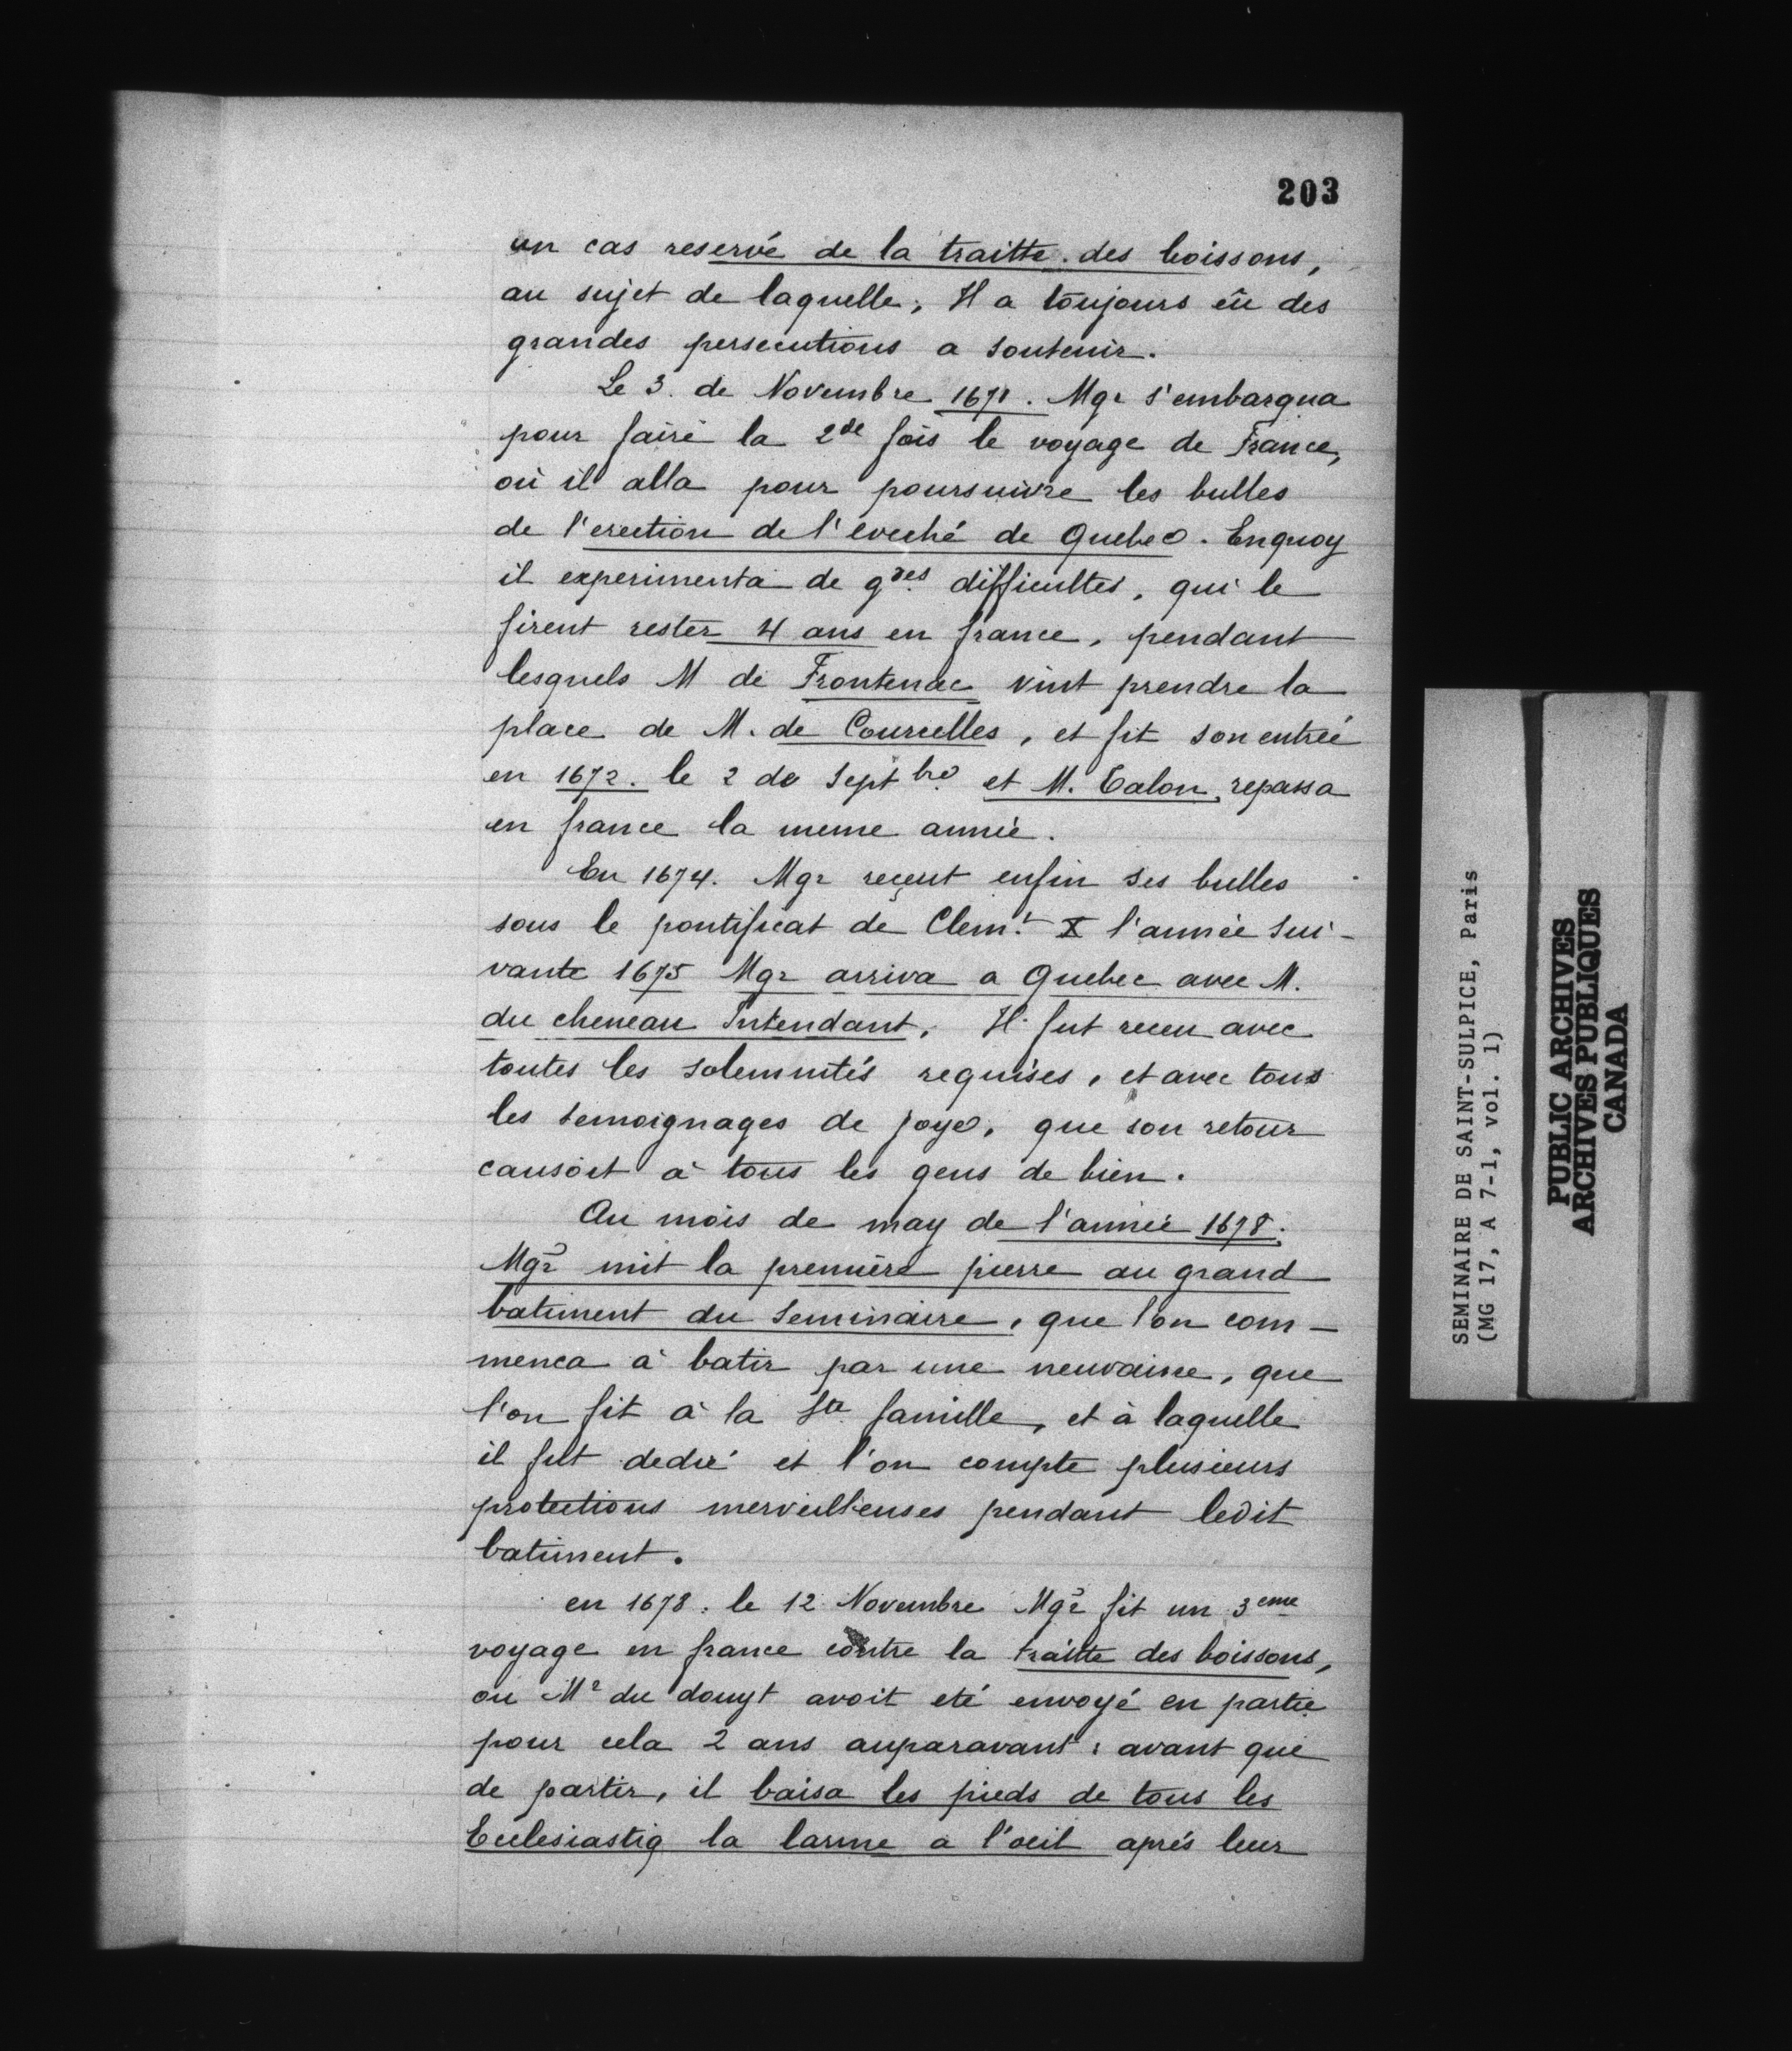 203
un cas reservé de la traitte des boissons,
au sujet de laquelle, Il a toujours eû des
grandes persecutions a soutenir.
Le 3. de Novembre 1671. Mgr s'embarqua
pour faire la 2de fois le voyage de France,
où il alla pour poursuivre les bulles
de l'erection de l'eveché de Quebec. Enquoy
il experimenta de gdes difficultes, qui le
firent rester 4 ans en france, pendant
lesquels M de Frontenac vint prendre la
place de M. de Courcelles, et fit son entrée
en 1672. le 2 de Septbre et M. Talon, repassa
en france la meme année.
En 1674. Mgr reçeut enfin ses bulles
sous le pontificat de Clemt X l'année sui-
vante 1675 Mgr arriva a Quebec avec M.
du cheneau Intendant. Il fut receu avec
toutes les solemnités requises, et avec tous
les temoignages de joye, que son retour
causoit à tous les gens de bien.
Au mois de may de l'année 1678.
Mgr mit la première pierre au grand
batiment du Seminaire, que l'on com-
menca à batir par une neuvaine, que
l'on fit à la Ste famille, et à laquelle
il fut dedié et l'on compte plusieurs
protections merveilleuses pendant ledit
batiment.
en 1678. le 12 Novembre Mgr fit un 3eme
voyage en france contre la traitte des boissons,
ou Mr du douyt avoit eté envoyé en partie
pour cela 2 ans auparavant : avant que
de partir, il baisa les pieds de tous les
Ecclesiastiq la larme a l'oeil aprés leur
SEMINAIRE DE SAINT-SULPICE, Paris
(MG 17, A 7-1, vol. 1)
PUBLIC ARCHIVES
ARCHIVES PUBLIQUES
CANADA